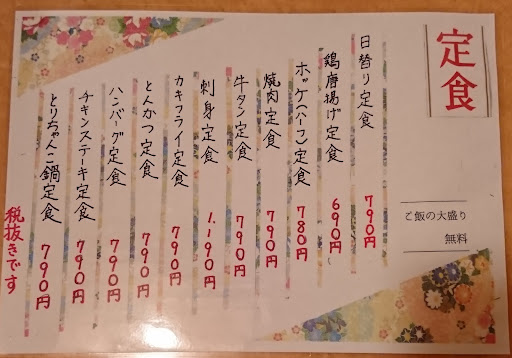 定食
ご飯の大盛り
無料
日替り定食 790円
鶏唐揚げ定食 690円
ホッケ(ハーフ)定食 780円
焼肉定食 790円
牛タン定食 790円
刺身定食 1.190円
カキフライ定食 790円
とんかつ定食 790円
ハンバーグ定食 790円
チキンステーキ定食 790円
とりちゃんこ鍋定食 790円
税抜きです